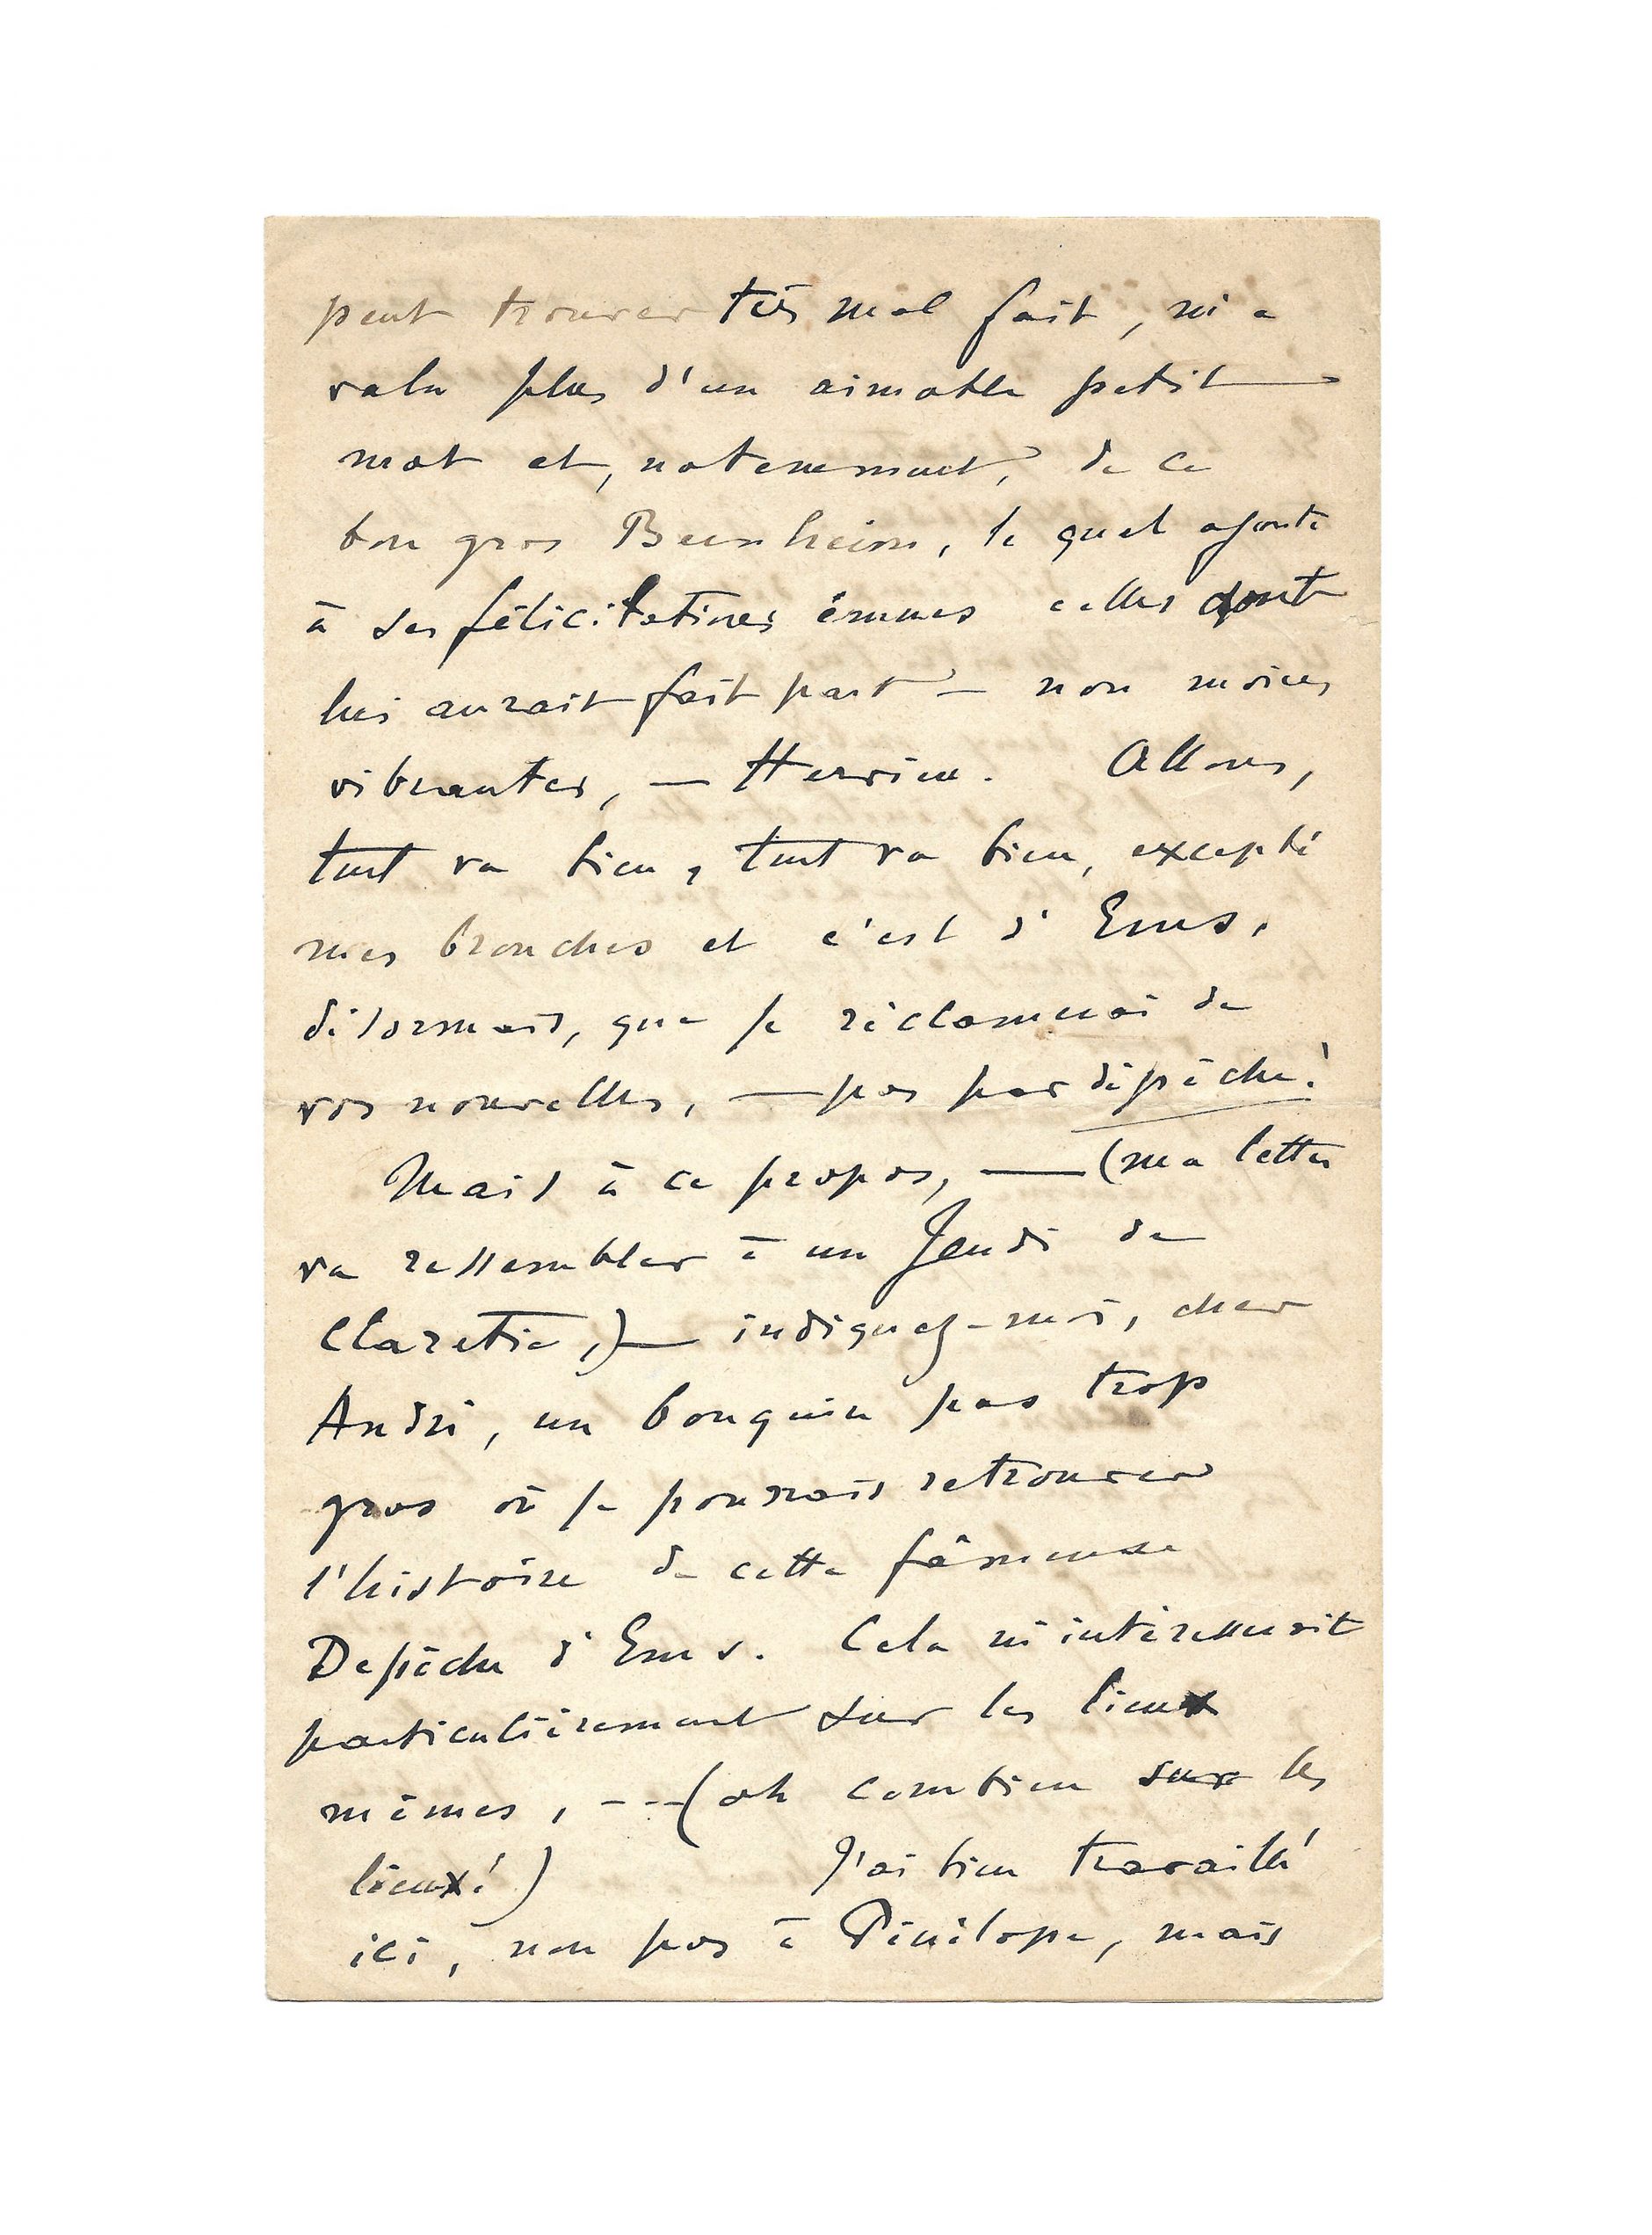 peut trouver très mal fait, m'a
valu plus d'un aimable petit
mot et, notamment, de ce
bon gros Bernheim, le quel ajoute
à ses félicitations émues celles dont
lui aurait fait part — non moins
vibrantes, — Hervieu. Allons,
tout va bien, tout va bien, excepté
mes bronches et c'est d'Ems,
désormais, que je réclamerai de
vos nouvelles, — pas par dépêche!
Mais à ce propos, — (ma lettre
va ressembler à un Jeudi de
Claretie,) — indiquez-moi, cher
André, un bouquin pas trop
gros où je pourrais retrouver
l'histoire de cette fâmeuse
Depêche d'Ems. Cela m'intéresserait
particulièrement sur les lieux
mêmes, --- (oh combien sur les
lieux!) J'ai bien travaillé
ici, non pas à Pénélope, mais